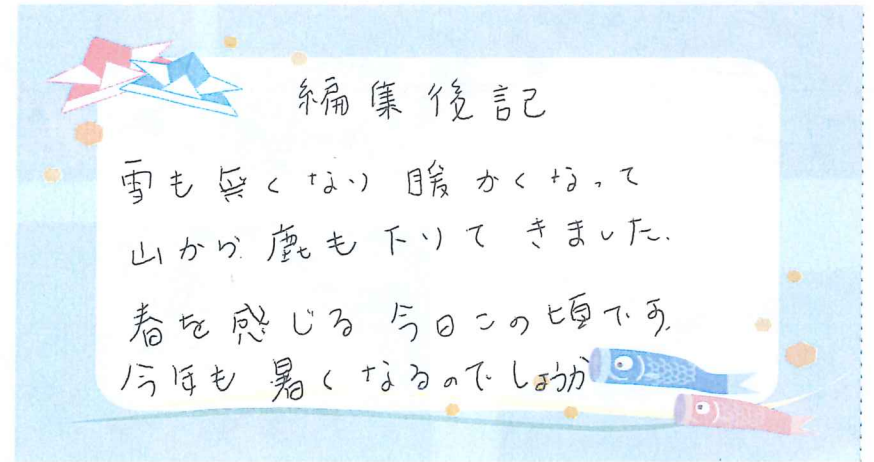 編集後記
雪も無くなり 暖かくなって
山から 鹿も下りて きました.
春を感じる 今日この頃です.
今年も 暑くなるのでしょうか